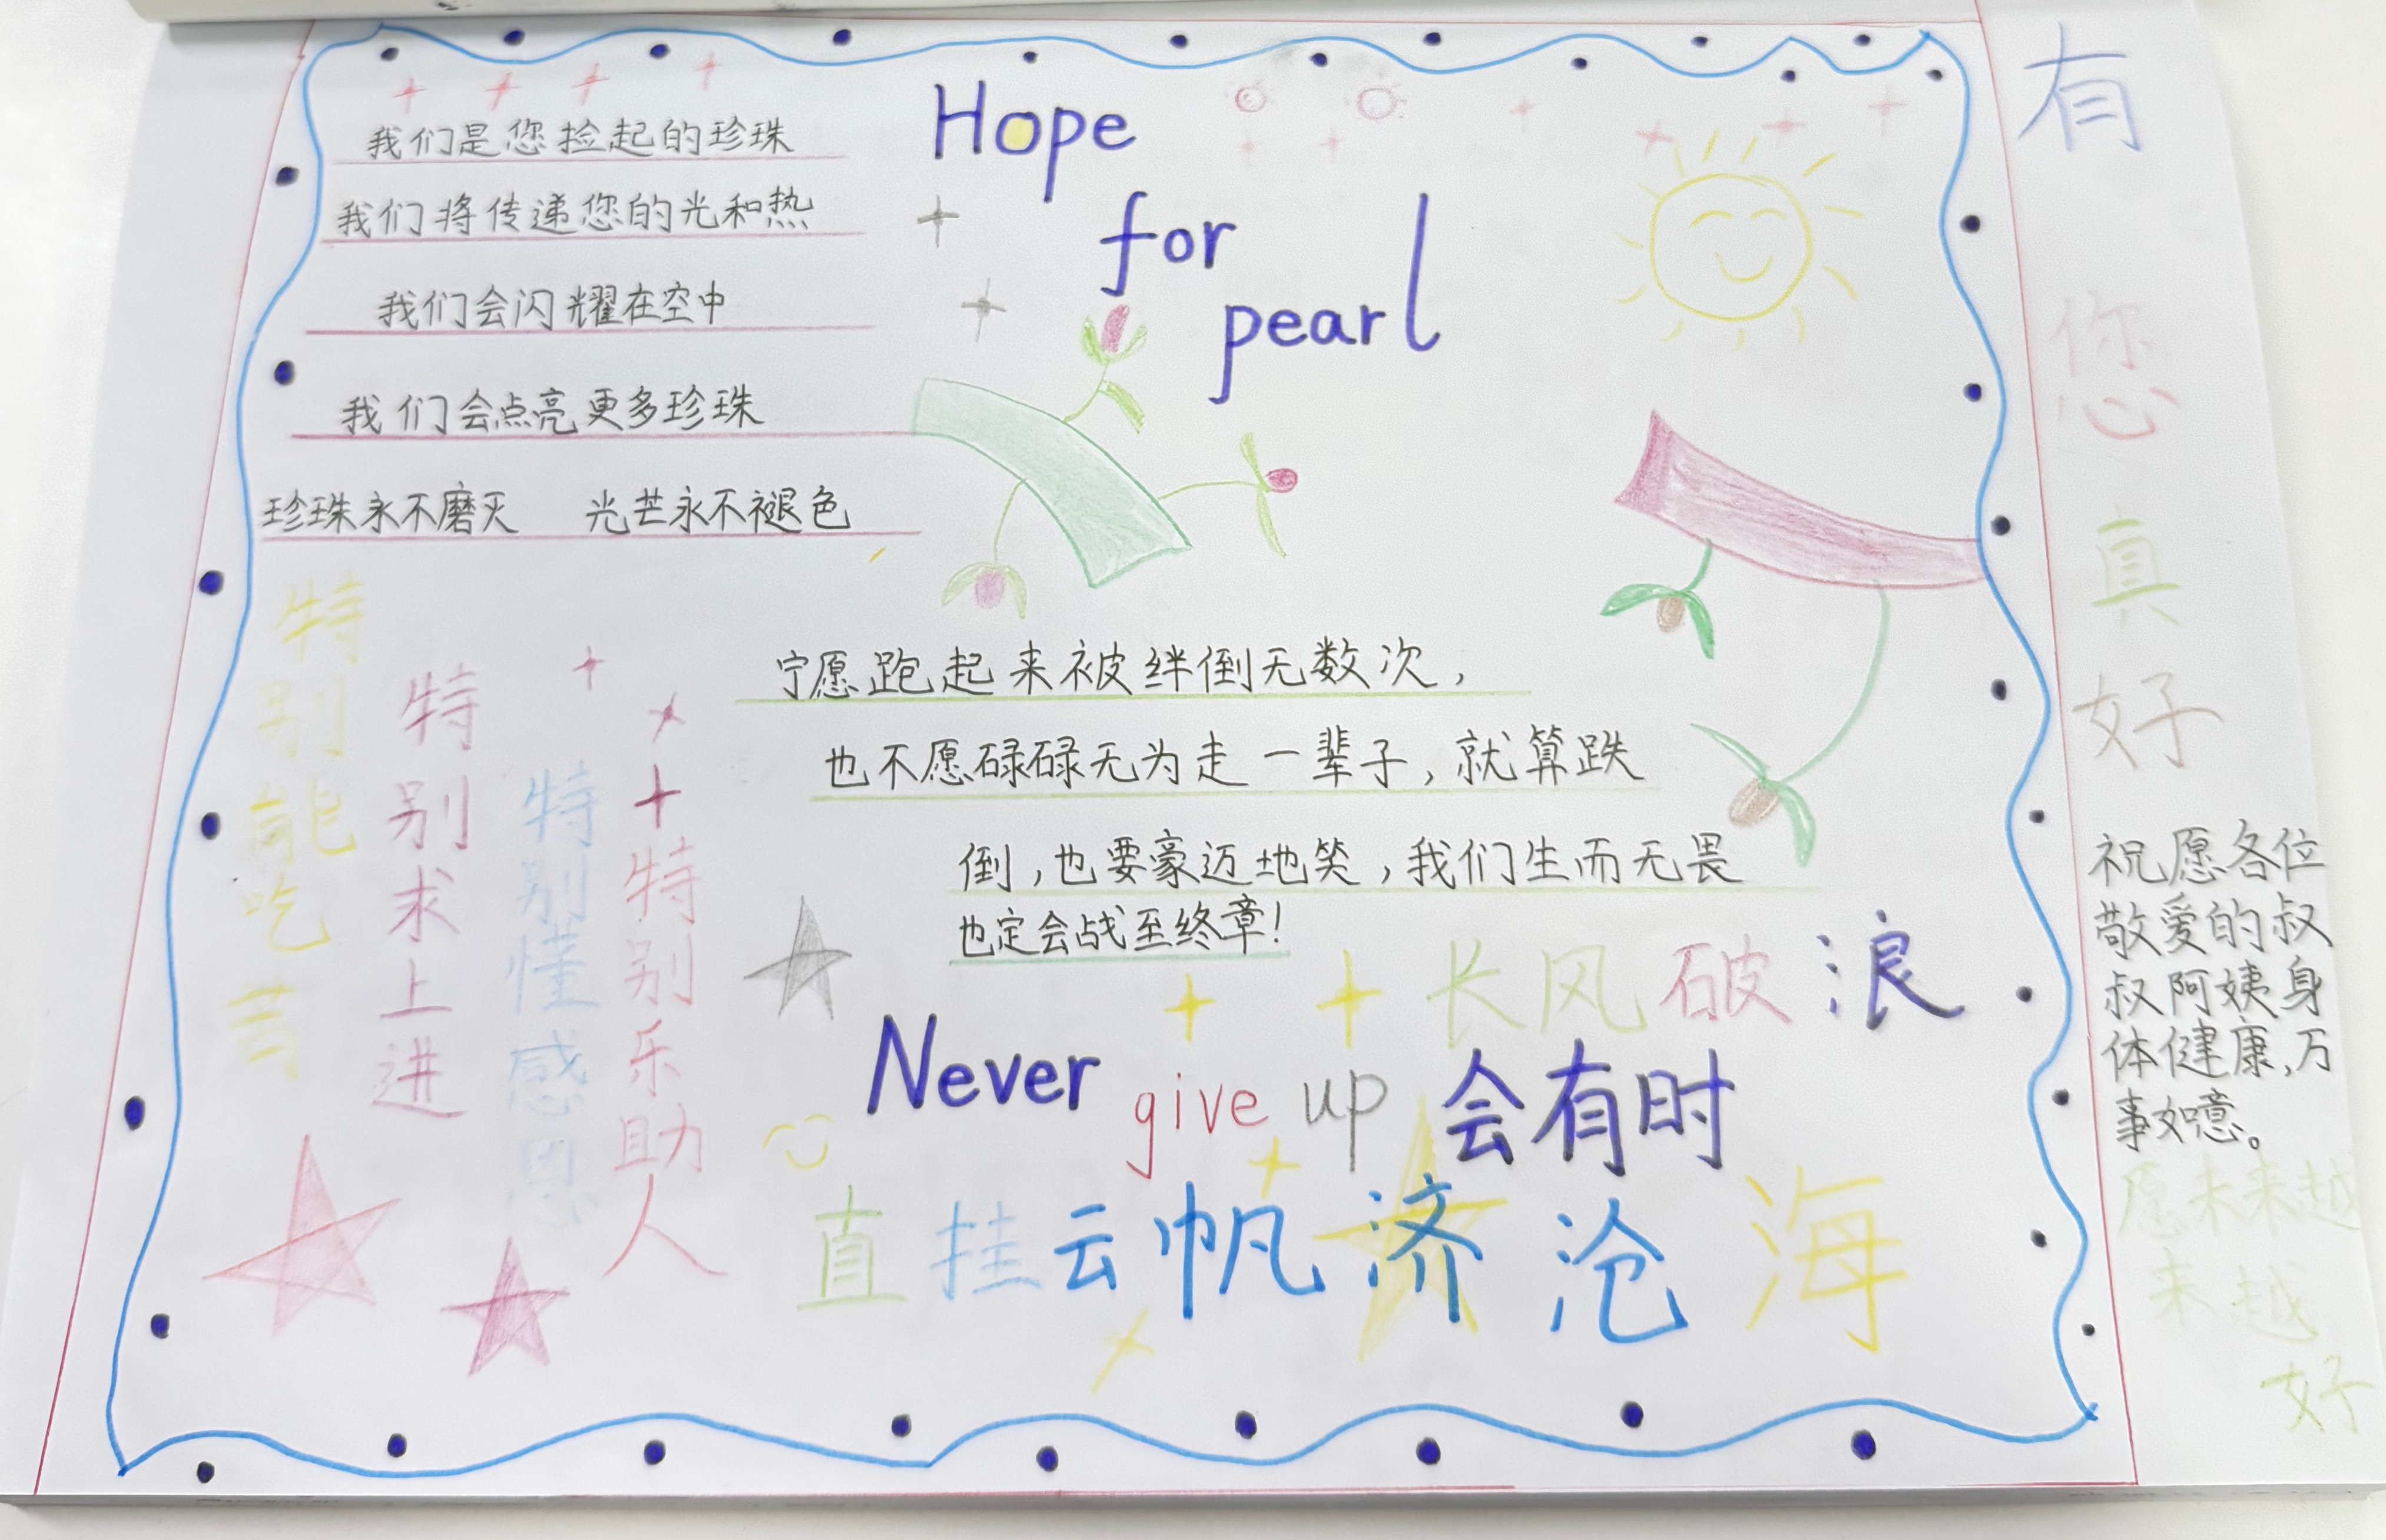 我们是您捡起的珍珠
我们将传递您的光和热
我们会闪耀在空中
我们会点亮更多珍珠
珍珠永不磨灭 光芒永不褪色
Hope
for
pearl
宁愿跑起来被绊倒无数次，
也不愿碌碌无为走一辈子，就算跌
倒，也要豪迈地笑，我们生而无畏
也定会战至终章！
特别能吃苦
特别求上进
特别懂感恩
特别乐助人
长风破浪
Never give up 会有时
直挂云帆济沧海
有您真好
祝愿各位
敬爱的叔
叔阿姨身
体健康，万
事如意。
愿未来越
来越
好